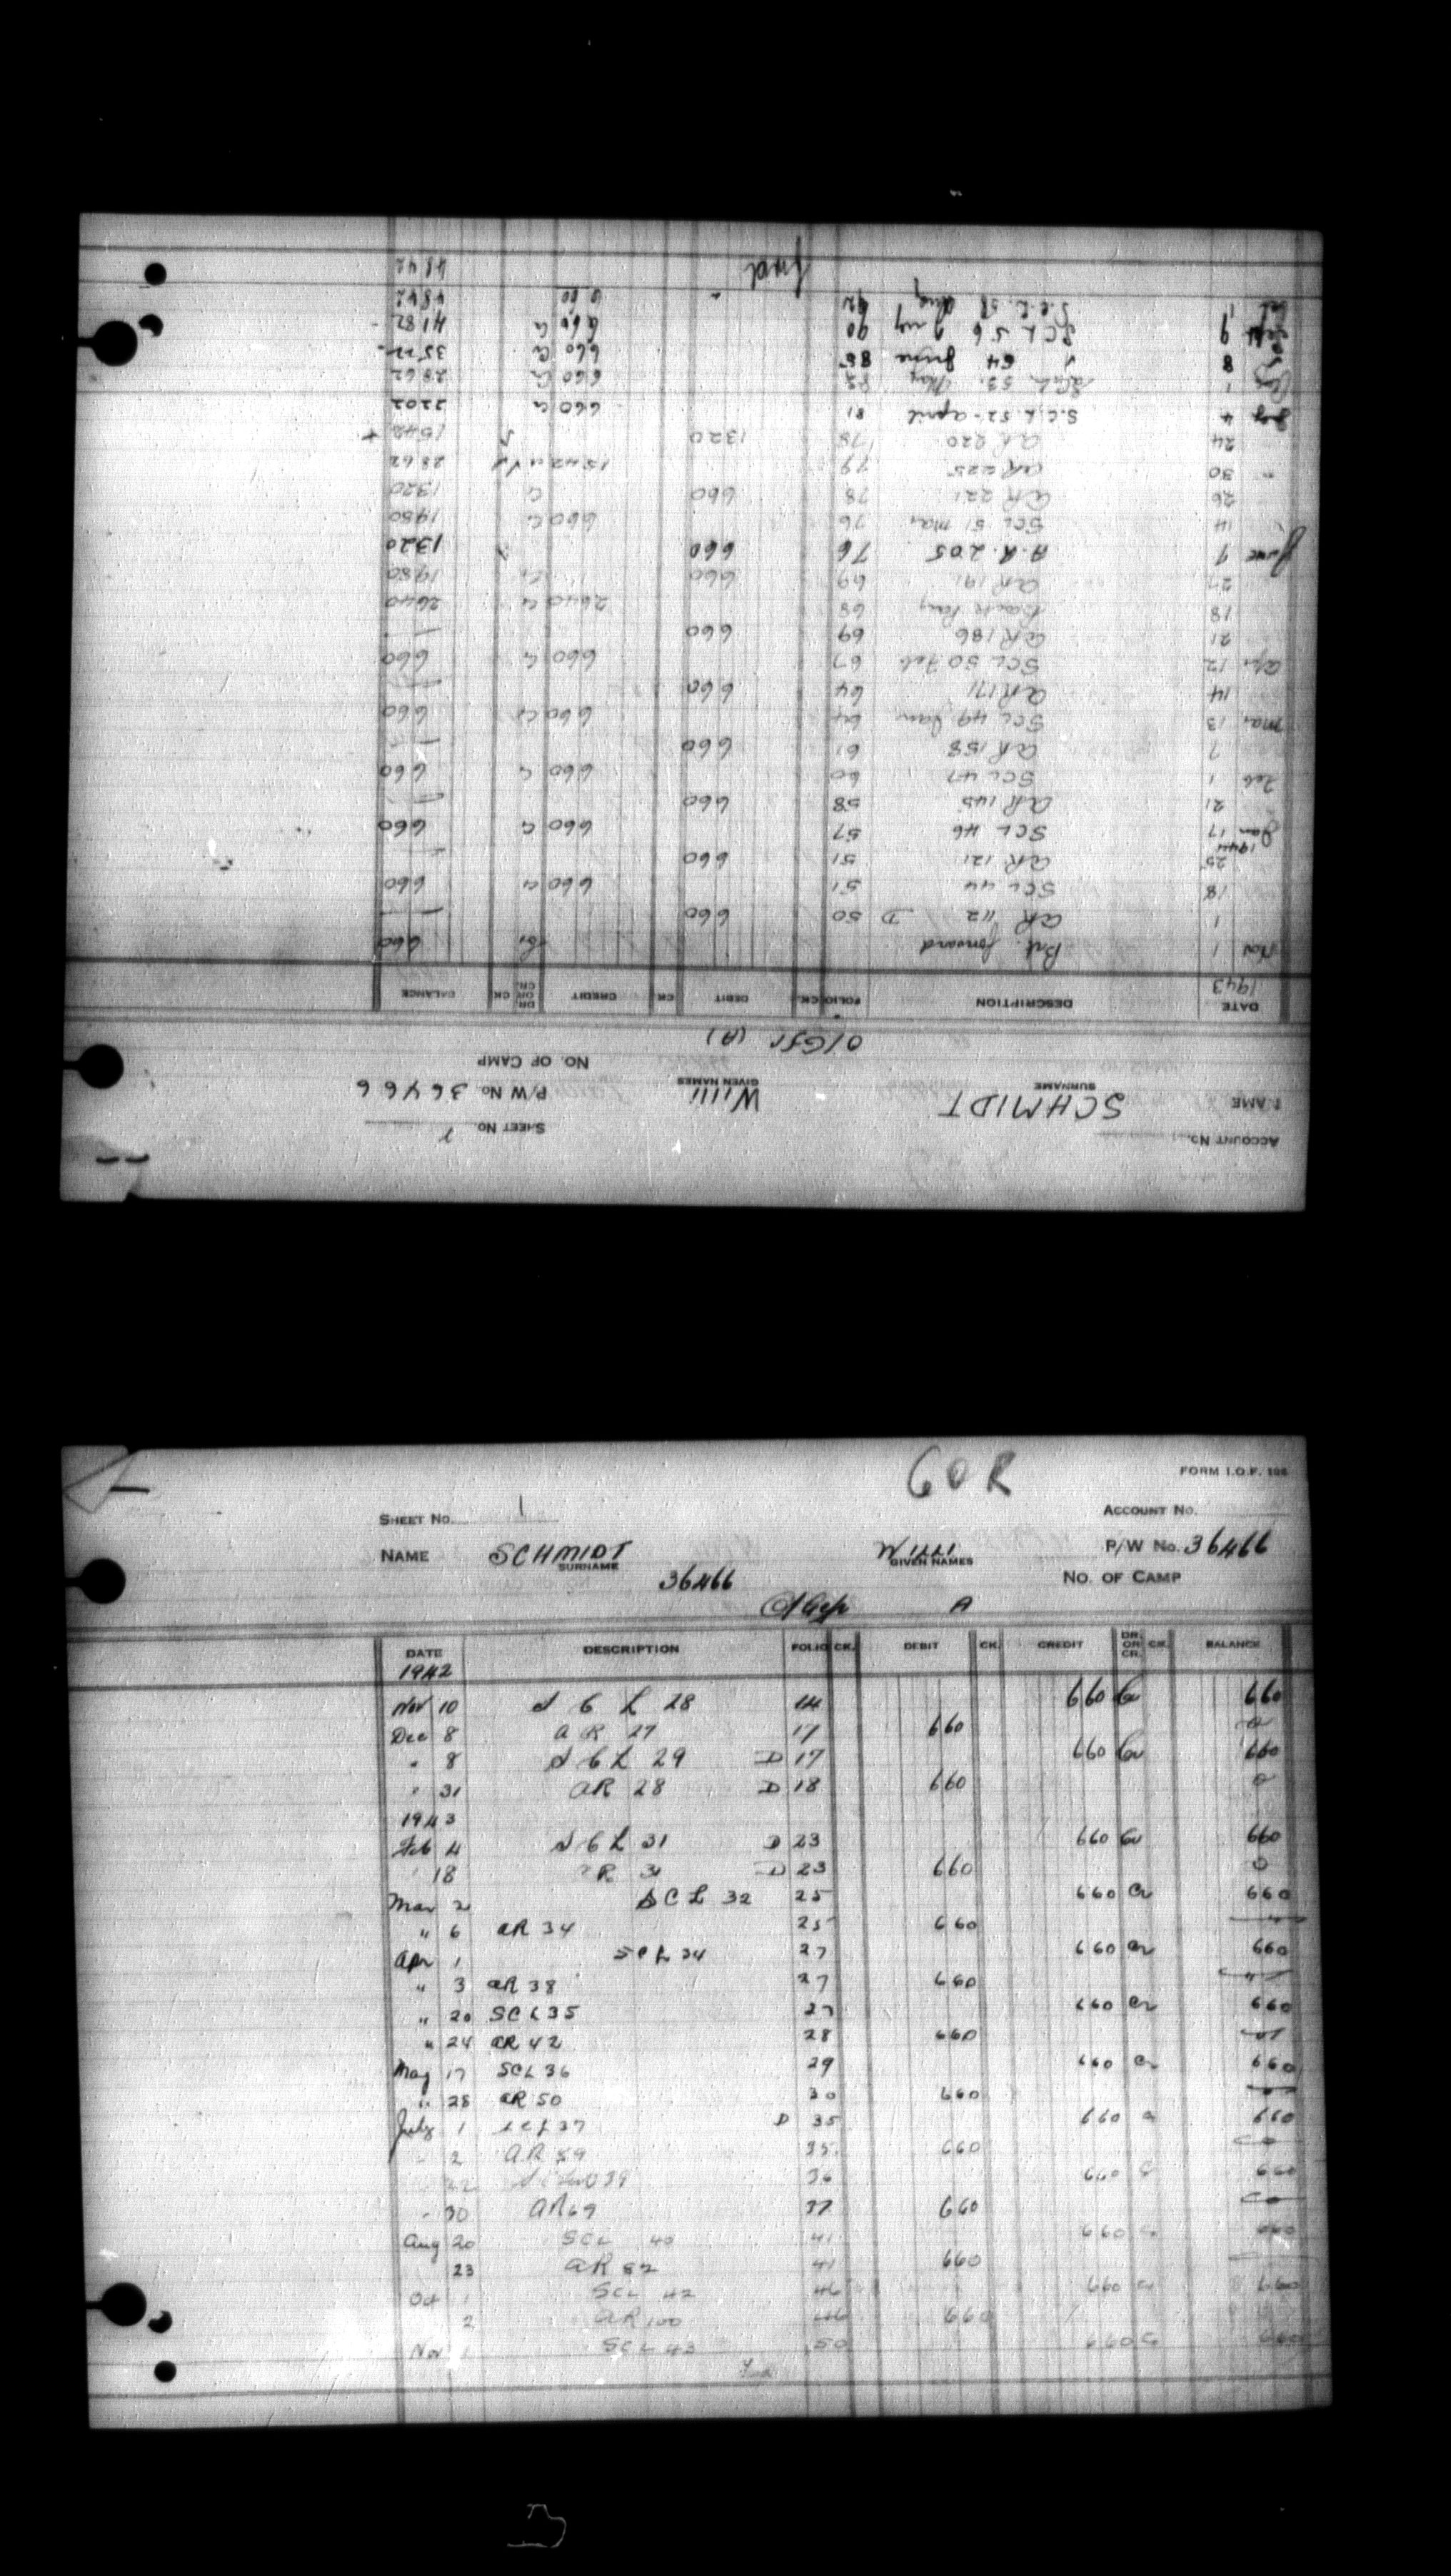 ACCOUNT No.
SHEET No. 2
NAME SCHMIDT Willi P/W No. 36466
SURNAME GIVEN NAMES
NO. OF CAMP
O/Gfr (A)
DATE DESCRIPTION FOLIO CK. DEBIT CK. CREDIT DR. OR CR. CK. BALANCE
1943
Nov 1 Bal. forward Cr 660
1 AR 112 D 50 660 —
18 SCL 44 51 660 Cr 660
25 AR 121 51 660 —
1944
Jan 17 SCL 46 57 660 Cr 660
21 AR 145 58 660 —
Feb 1 SCL 47 60 660 Cr 660
7 AR 158 61 660 —
Mar 13 SCL 49 Jan 64 660 Cr 660
14 AR 171 64 660 —
Apr 12 SCL 50 Feb 67 660 Cr 660
21 AR 186 69 660 —
18 Back Pay 68 2640 Cr 2640
27 AR 191 69 660 Cr 1980
June 7 A.R. 205 76 660 1320
14 SCL 51 Mar 76 660 Cr 1980
26 AR 221 78 660 Cr 1320
" 30 AR 225 79 1542 Cr 2862
24 AR 220 78 1320 1542
4 S.C.L. 52 - April 81 660 Cr 2202
1 SCL 53. May 660 Cr 2862
8 " 54 June 85 660 Cr 3522
Sept 9 SCL 56 July 90 660 Cr 4182
Oct 1 S.C.L. 58 Aug 92 660 4842
fwd 4842
GOR
FORM I.O.F. 108
SHEET No. 1 ACCOUNT No.
NAME SCHMIDT WILLI P/W No. 36466
SURNAME GIVEN NAMES
36466 NO. OF CAMP
O/Gefr A
DATE DESCRIPTION FOLIO CK. DEBIT CK. CREDIT DR. OR CR. CK. BALANCE
1942
Nov 10 S C L 28 14 660 Cr 660
Dec 8 A R 27 17 660 0
" 8 S C L 29 D 17 660 Cr 660
" 31 AR 28 D 18 660 0
1943
Feb 4 S C L 31 D 23 660 Cr 660
" 18 R 31 D 23 660 0
Mar 2 SCL 32 25 660 Cr 660
" 6 AR 34 25 660
Apr 1 SCL 34 27 660 Cr 660
" 3 AR 38 27 660
" 20 SCL 35 27 660 Cr 660
" 24 AR 42 28 660
May 17 SCL 36 29 660 Cr 660
" 28 AR 50 30 660
July 1 SCL 37 D 35 660 Cr 660
" 2 AR 59 35 660
22 39 36 660 Cr 660
" 30 AR 69 37 660
Aug 20 SCL 40 41 660 Cr 660
23 AR 82 41 660 —
Oct 1 SCL 42 46 660 Cr 660
2 AR 100 46 660
Nov 1 SCL 43 50 660 Cr 660
Fwd